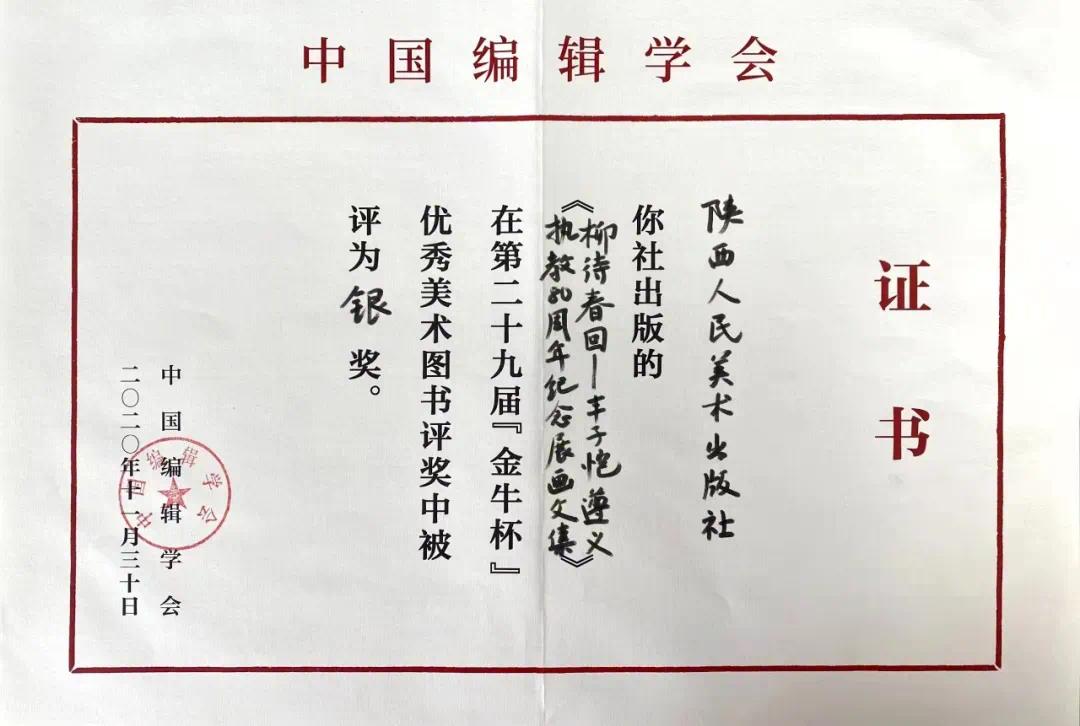 中国编辑学会
证书
陕西人民美术出版社
你社出版的
《柳待春回—丰子恺遵义
执教80周年纪念展画文集》
在第二十九届『金牛杯』
优秀美术图书评奖中被
评为银奖。
中国编辑学会
二〇二〇年十一月三十日
中国编辑学会